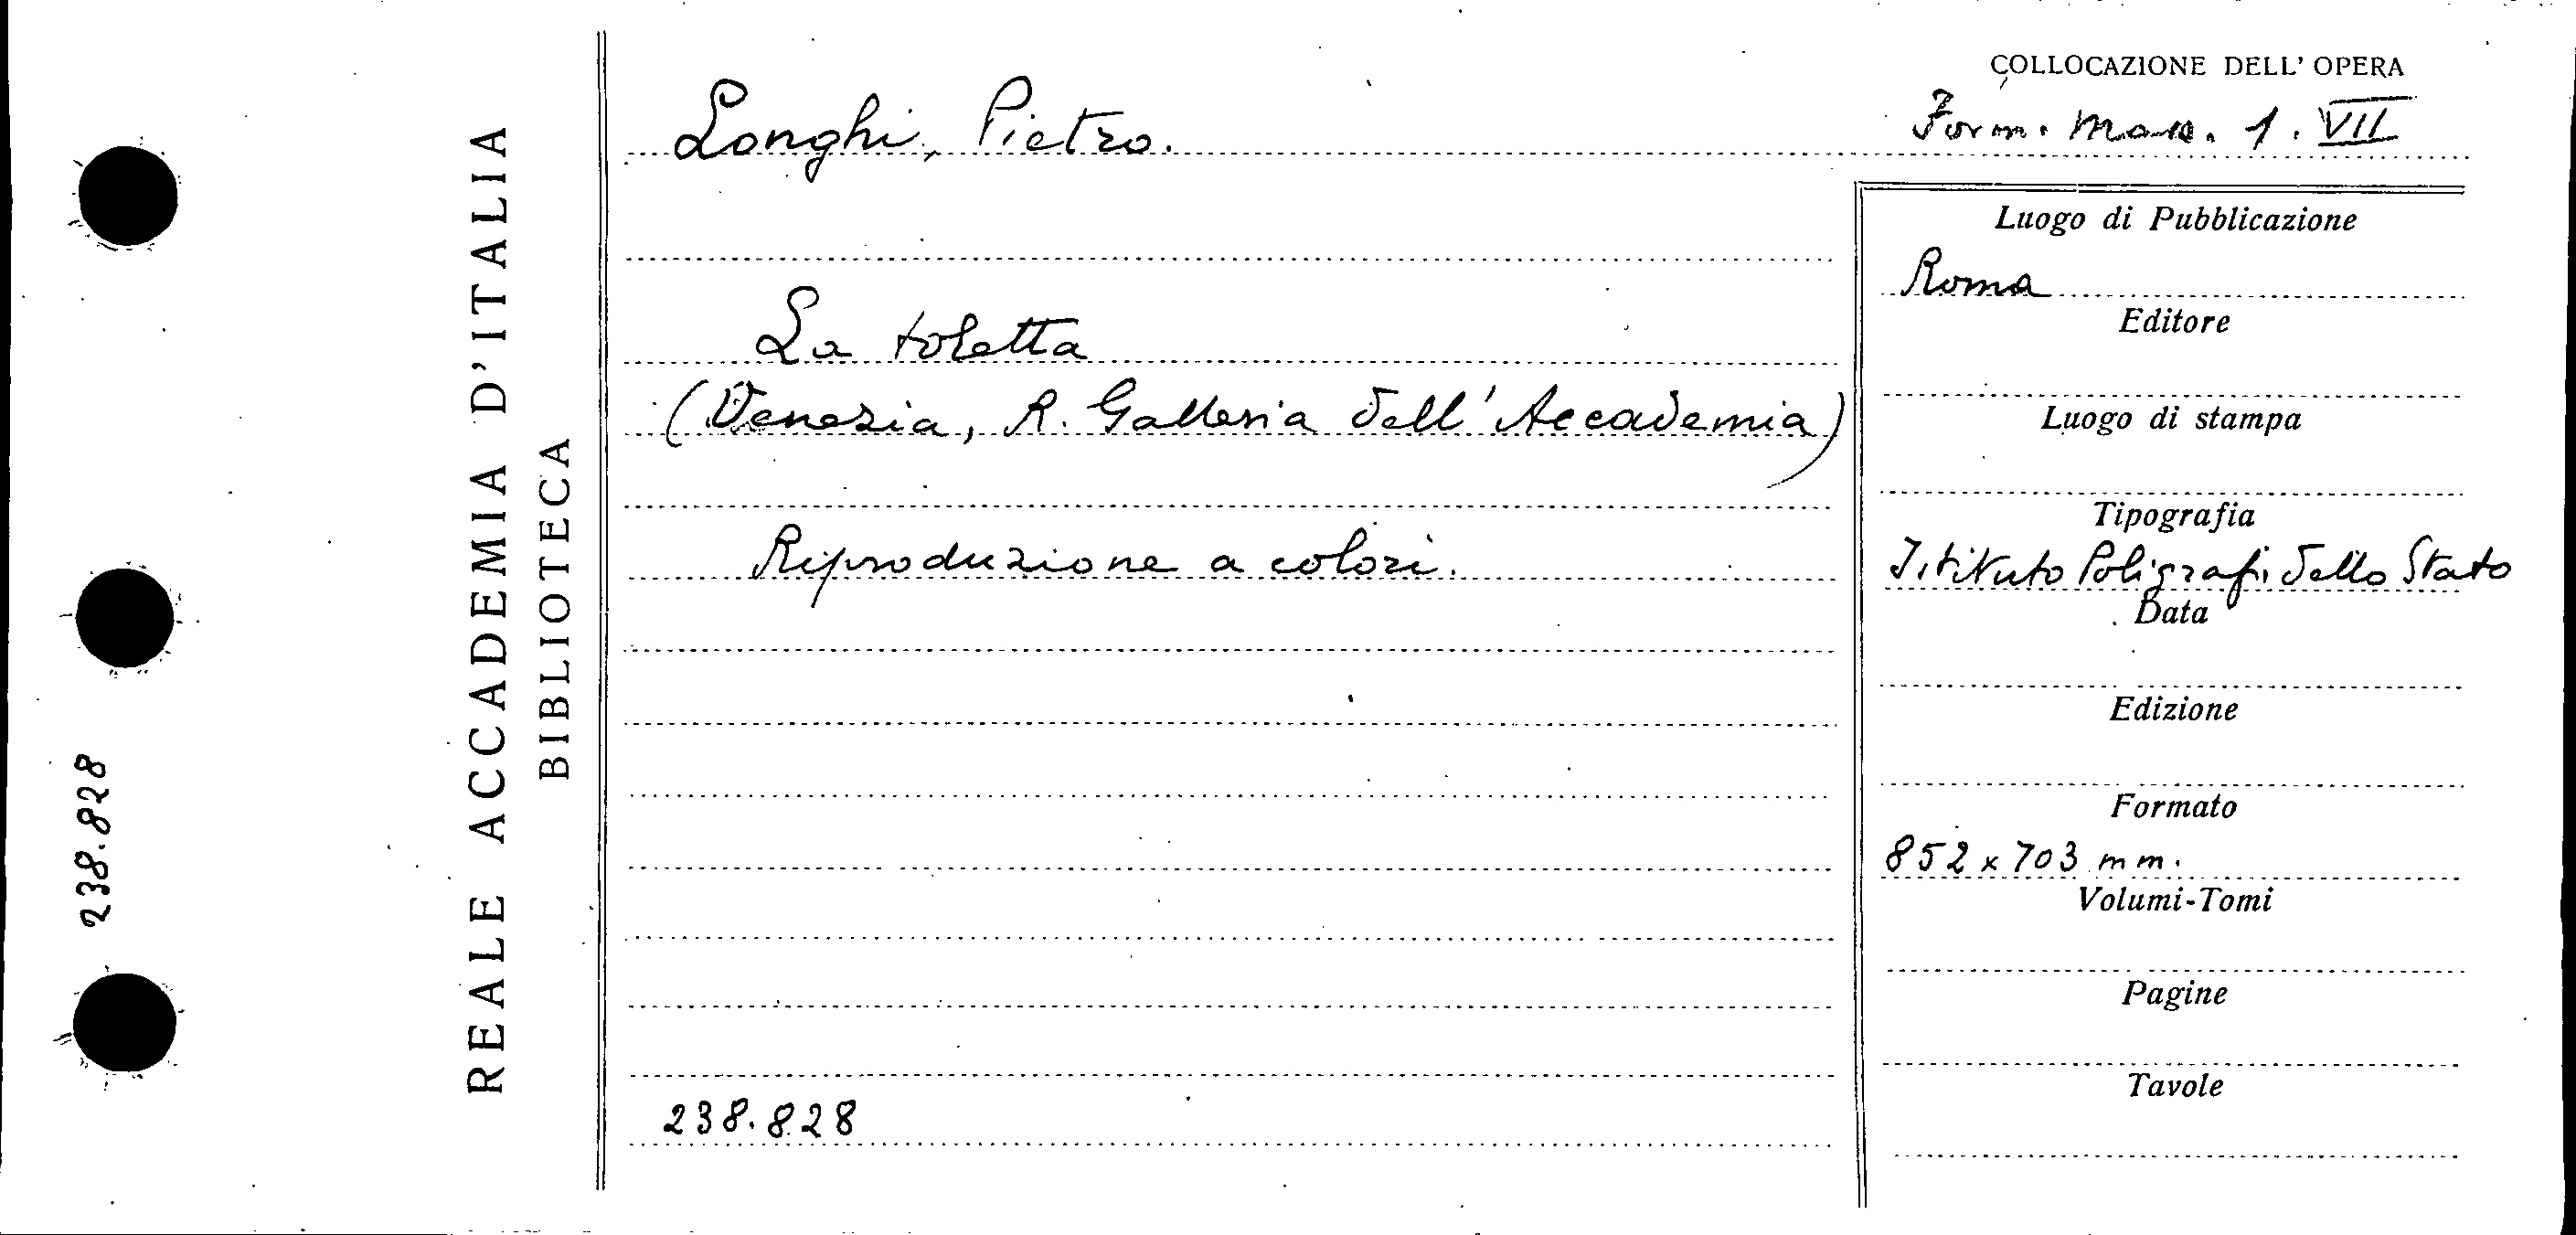 238.828
REALE ACCADEMIA D'ITALIA
BIBLIOTECA
Longhi, Pietro.
La toletta
(Venezia, R. Galleria dell'Accademia)
Riproduzione a colori.
238.828
COLLOCAZIONE DELL'OPERA
Form. Mass. 1. VII
Luogo di Pubblicazione
Roma
Editore
Luogo di stampa
Tipografia
Istituto Poligrafi. dello Stato
Data
Edizione
Formato
852 x 703 mm.
Volumi-Tomi
Pagine
Tavole